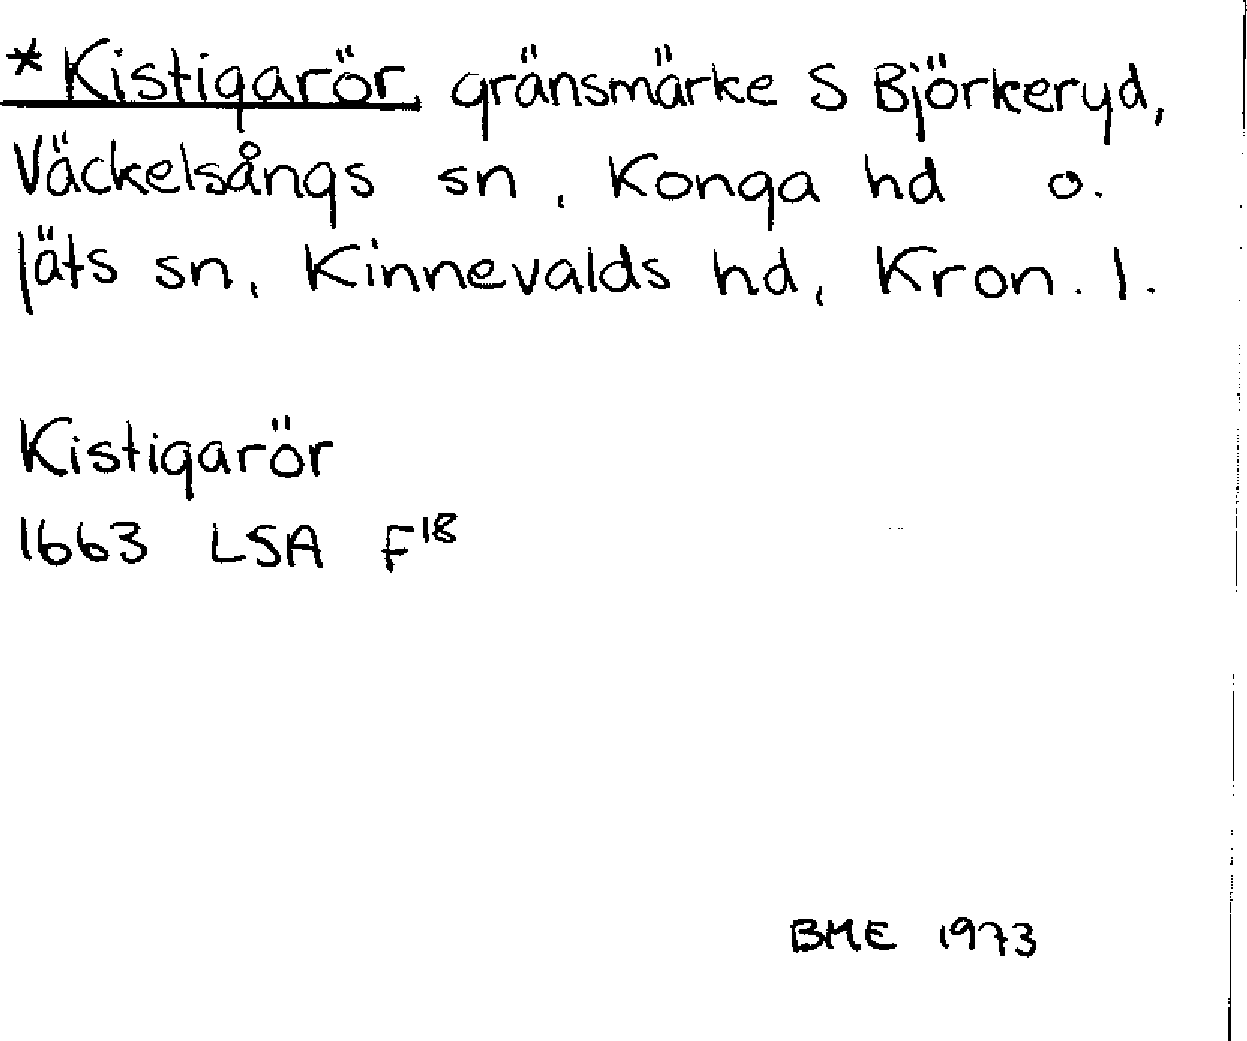 *Kistigarör, gränsmärke S Björkeryd,
Väckelsångs sn, Konga hd o.
Jäts sn, Kinnevalds hd, Kron. l.
Kistigarör
1663 LSA F18
BME 1973